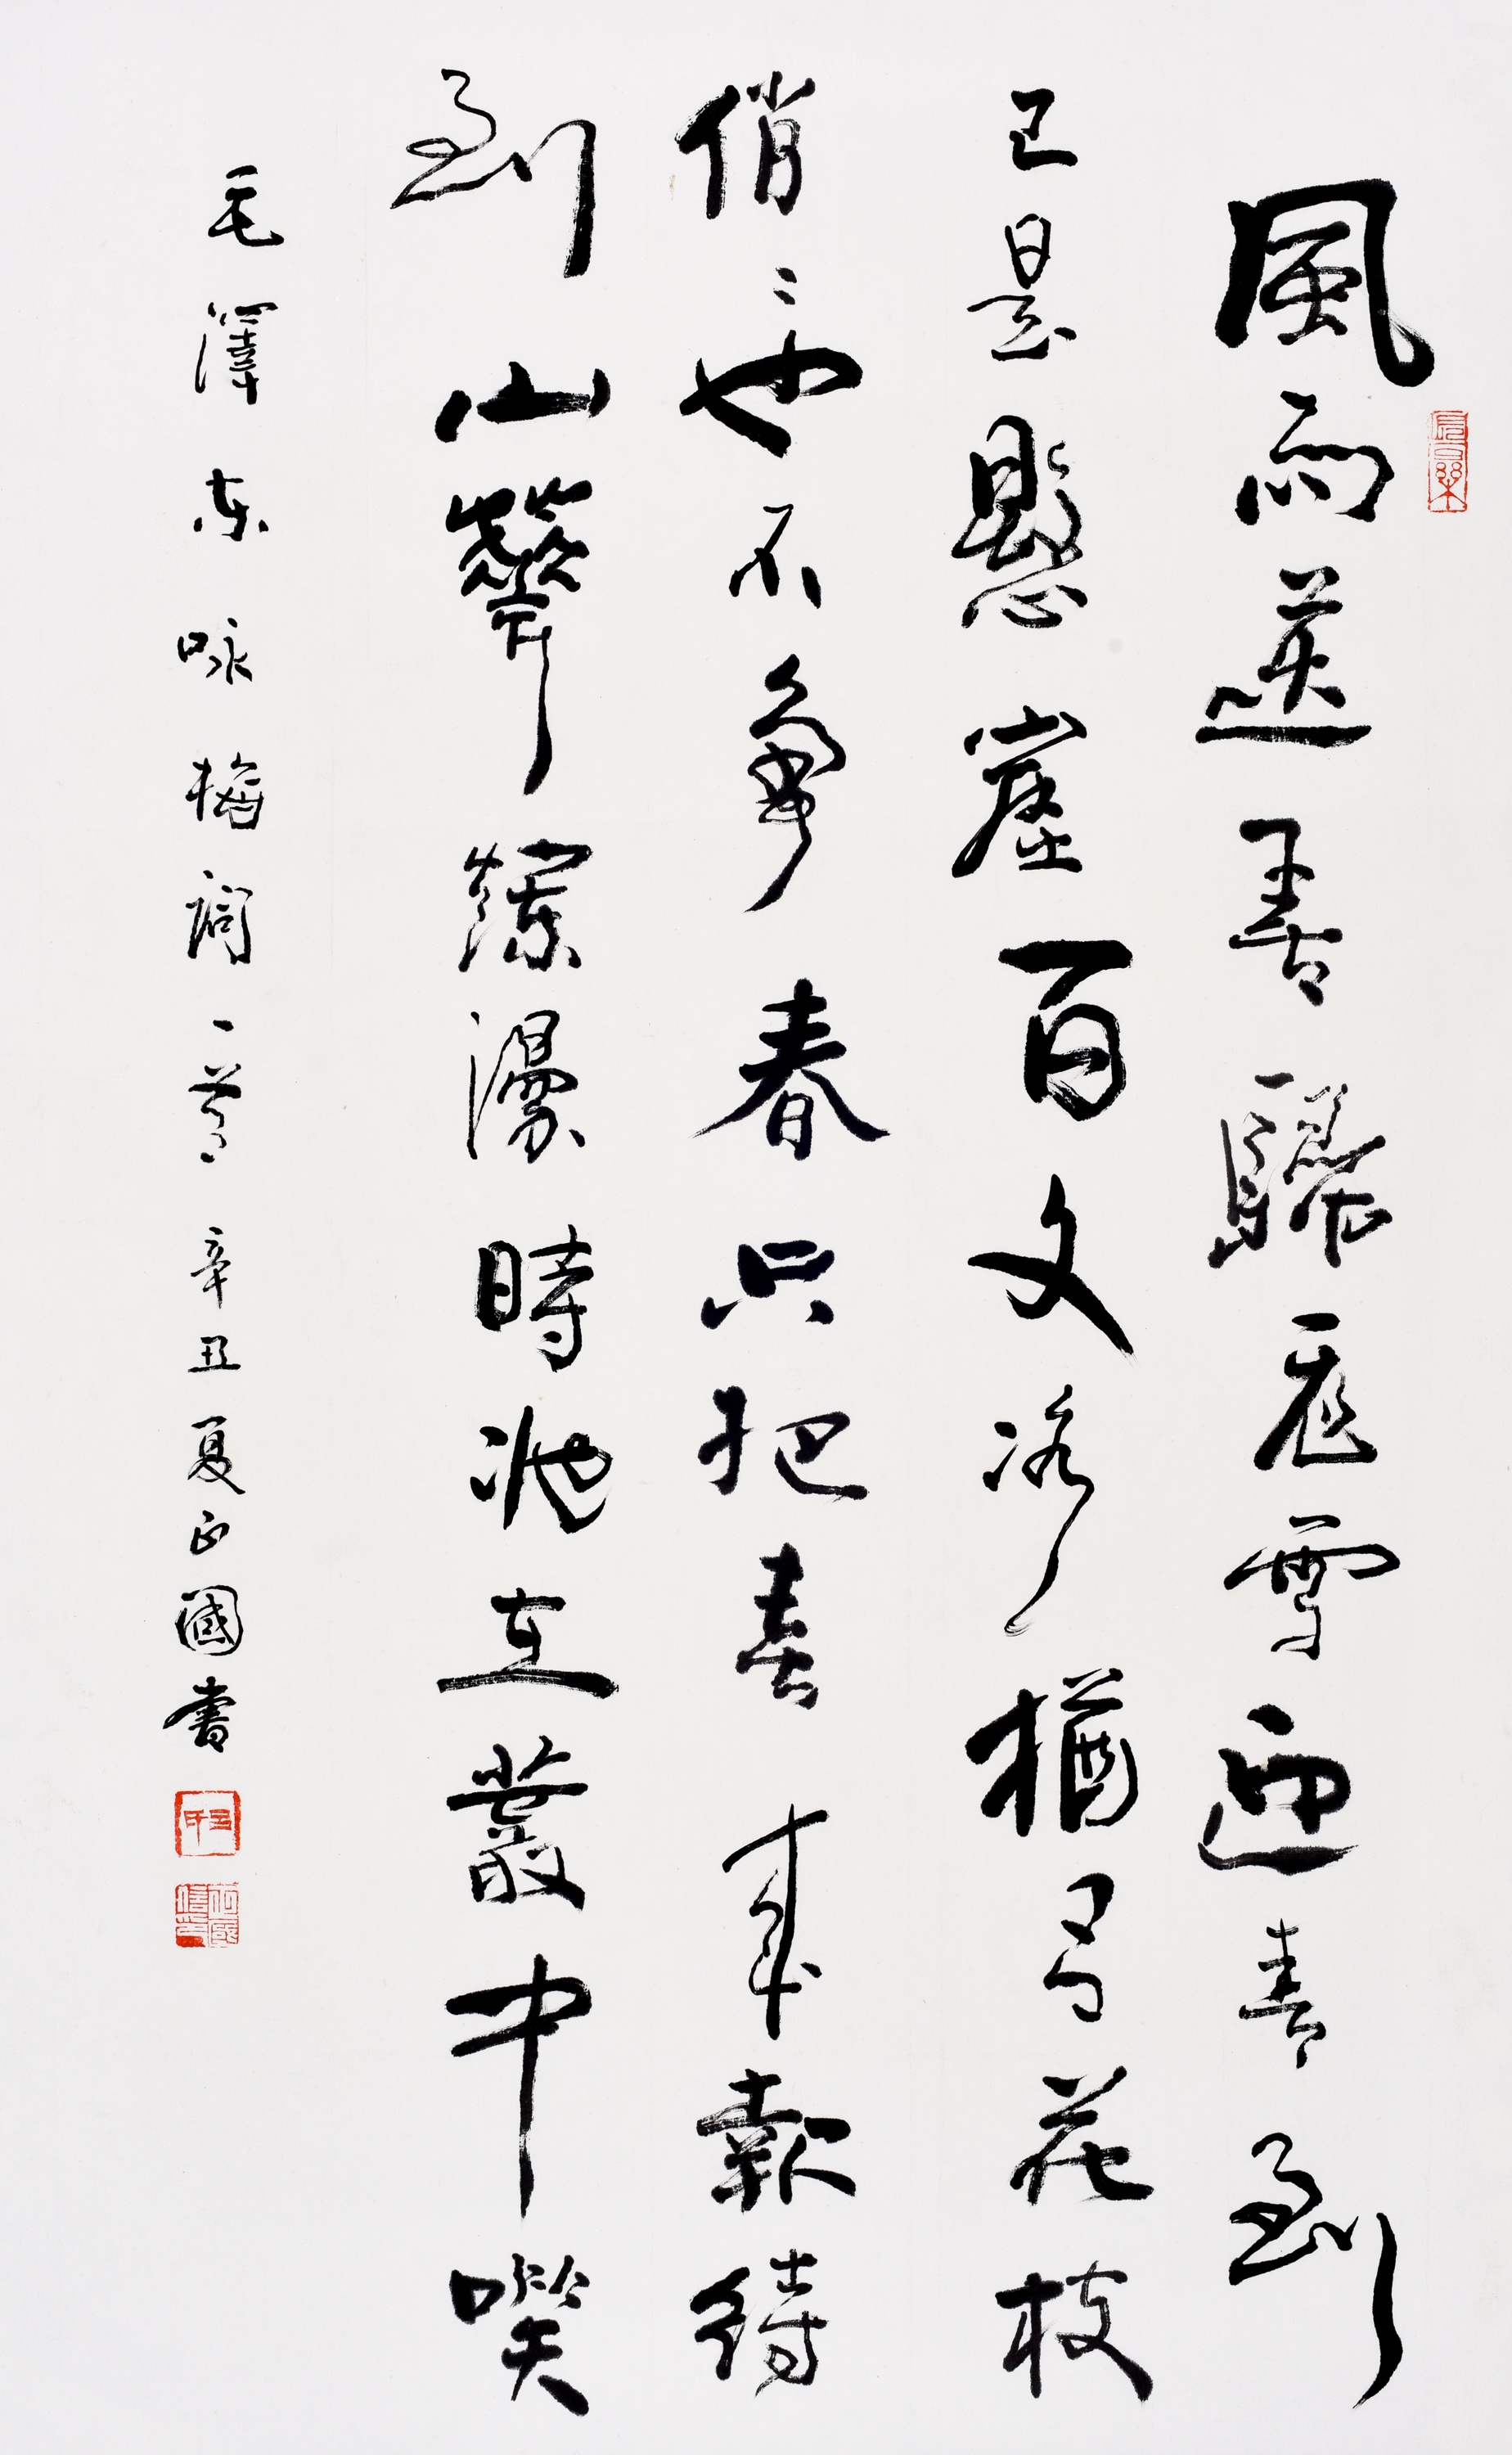 風雨送春歸飛雪迎春到
已是懸崖百丈冰猶有花枝
俏俏也不争春只把春來報待
到山花爛漫時她在叢中笑
毛澤東咏梅詞一首辛丑夏正國書